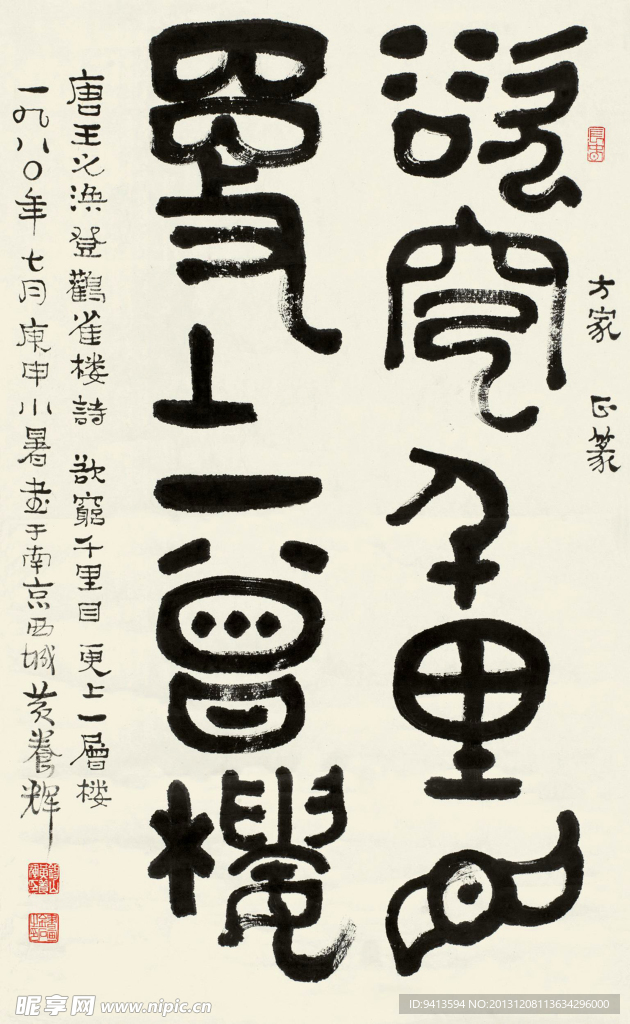 欲窮千里目
更上一曾樓
方家 正篆
唐王之渙登鸛雀楼詩 欲窮千里目 更上一層楼
一九八〇年七月庚申小暑書于南京西城黃養輝
昵享网 www.nipic.cn
ID:9413594 NO:20131208113634296000